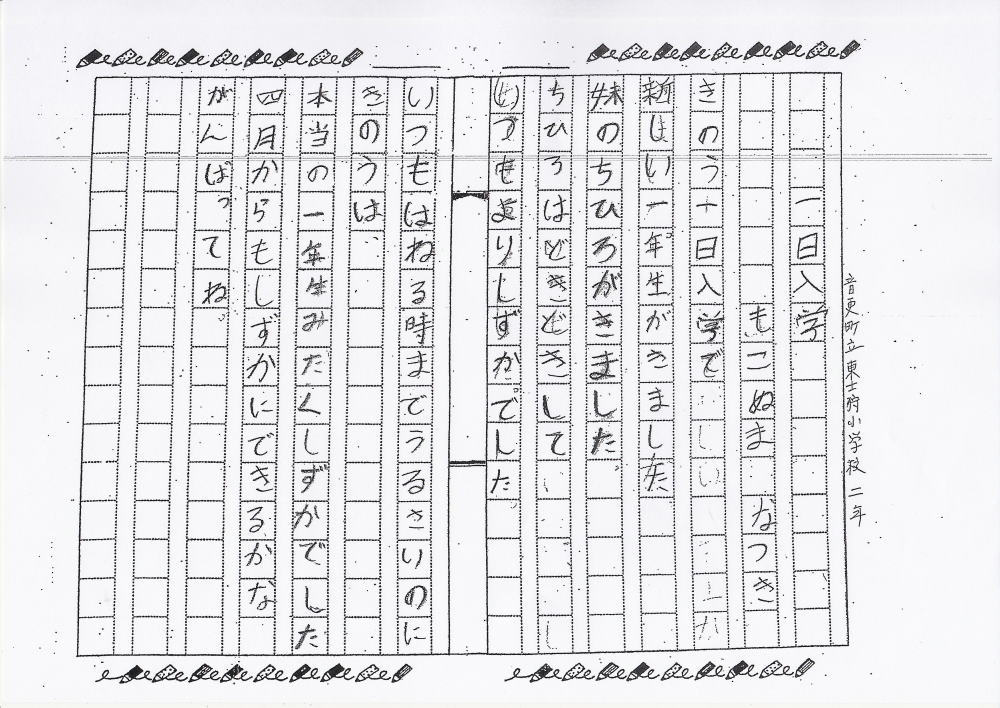 音更町立東士狩小学校二年
一日入学
もこぬま なつき
きのう一日入学で
新しい一年生がきました
妹のちひろがきました。
ちひろはどきどきして
いつもよりしずかでした。
いつもはねる時までうるさいのに
きのうは
本当の一年生みたくしずかでした
四月からもしずかにできるかな
がんばってね。